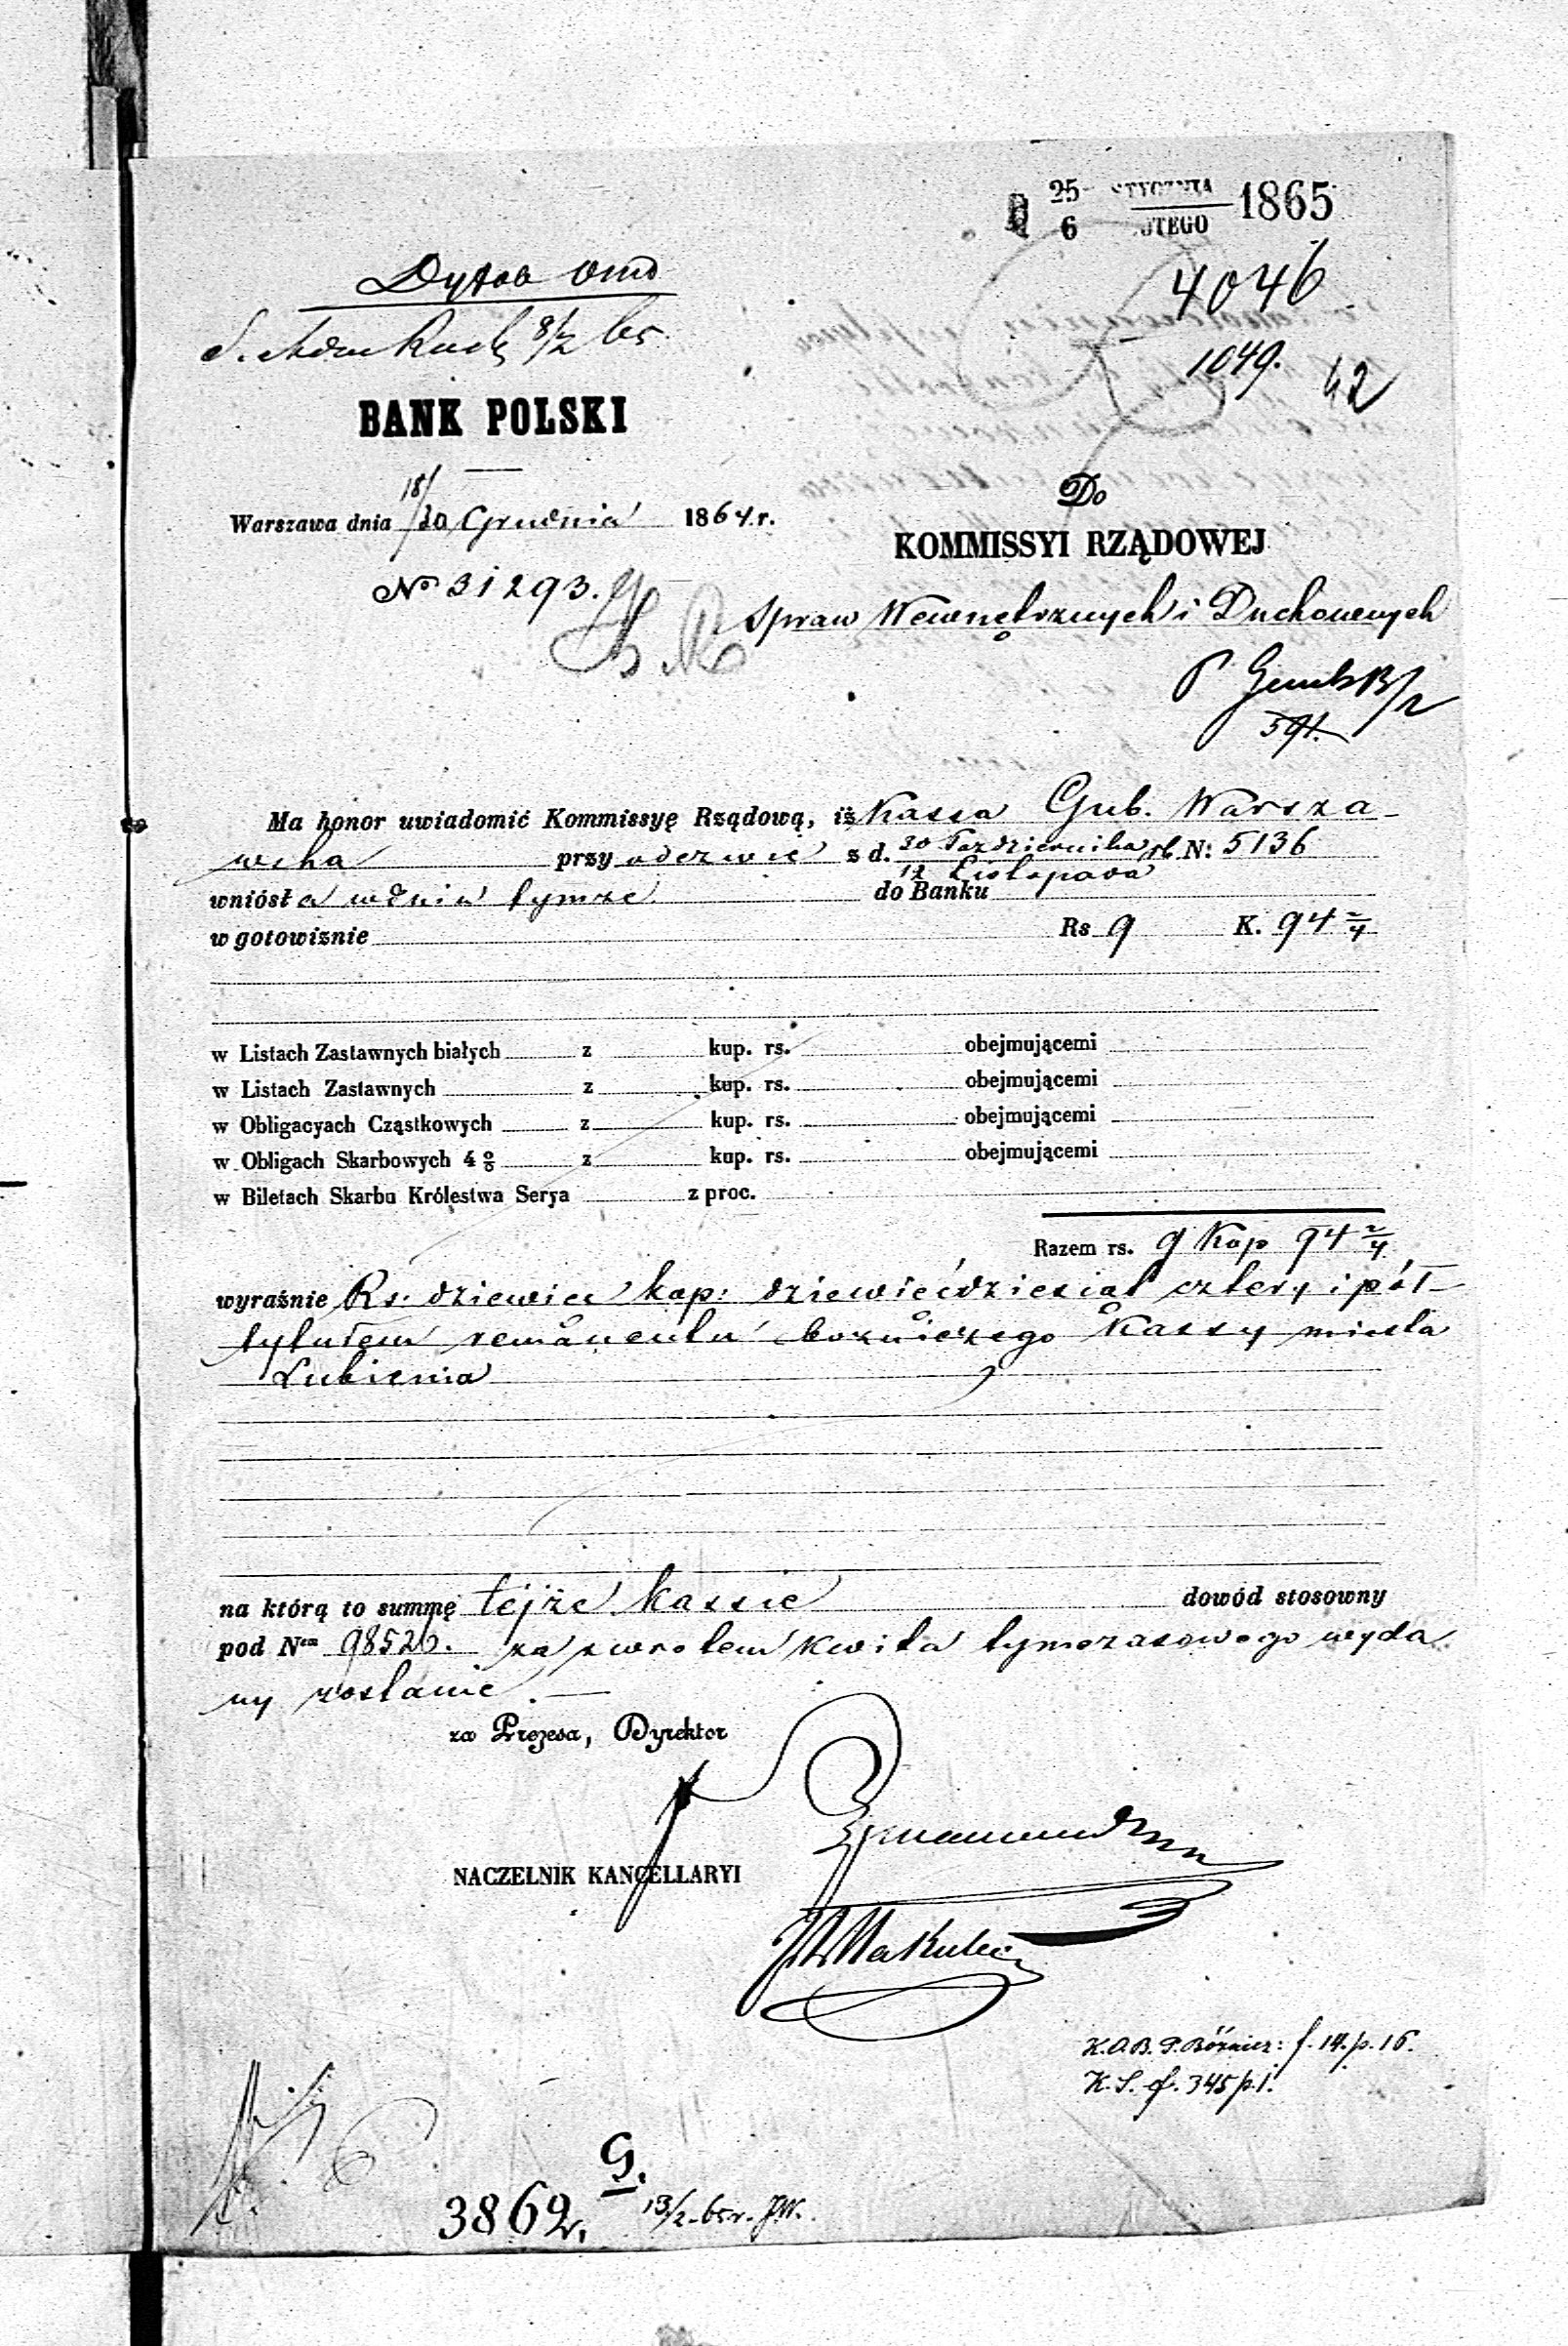 25 STYCZNIA 1865
6 LUTEGO
4046
1049.
42
8/2 65.
BANK POLSKI
Warszawa dnia 18/30 Grudnia 1864 r.
Do
KOMMISSYI RZĄDOWEJ
No 31293.
Spraw Wewnętrznych i Duchownych
591.
Ma honor uwiadomić Kommissyę Rządową, iż Kassa Gub. Warsza-
wska przy odezwie z d. 30 Października/12 Listopada rb N: 5136
wniósła w dniu tymże do Banku
w gotowiznie Rs 9 K. 94 2/4
w Listach Zastawnych białych z kup. rs. obejmującemi
w Listach Zastawnych z kup. rs. obejmującemi
w Obligacyach Cząstkowych z kup. rs. obejmującemi
w Obligach Skarbowych 4 % z kup. rs. obejmującemi
w Biletach Skarbu Królestwa Serya z proc.
Razem rs. 9 Kop 94 2/4
wyraźnie Rs. dziewięć kop: dziewięćdziesiąt cztery i pół
tytułem remanentu bożniczego Kassy miasta
Lubienia
na którą to summę tejże kassie dowód stosowny
pod Nem 98526. za zwrotem kwita tymczasowego wyda
ny zostanie.
za Prezesa, Dyrektor
NACZELNIK KANCELLARYI
K.O.B. P. Bóżnicz: f. 14. p. 16.
K.S. f. 345 p. 1.
G.
3862
13/2 65 r. JW.